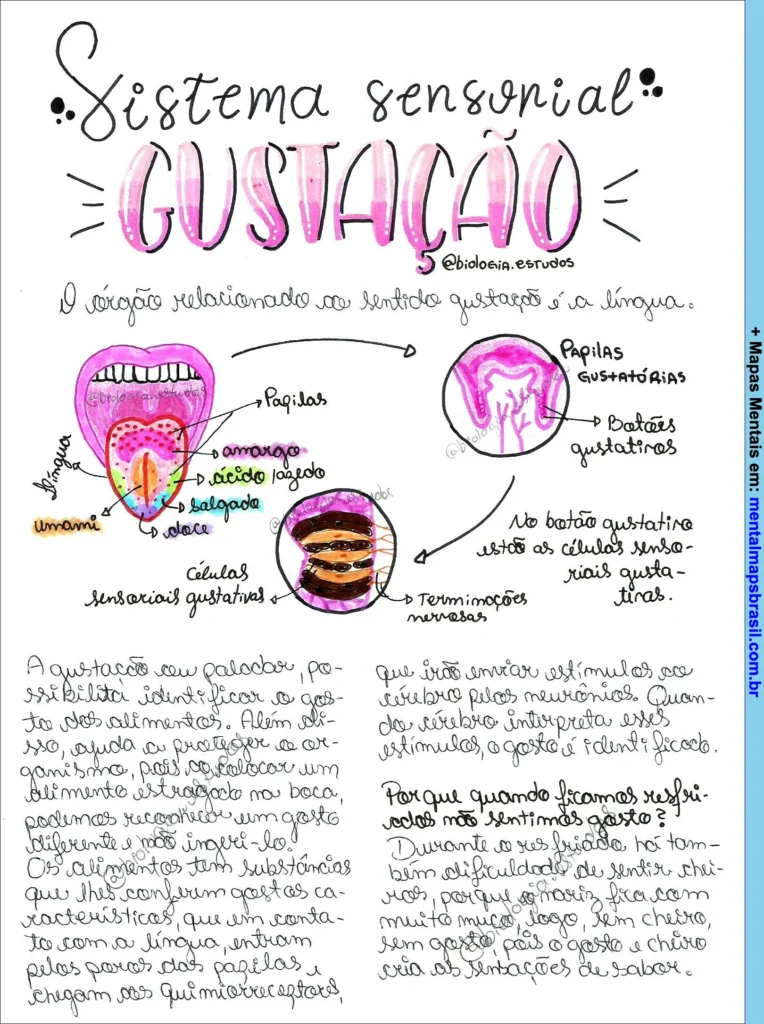 Sistema sensorial
GUSTAÇÃO
@biologia.estudos
O órgão relacionado ao sentido gustação é a língua.
@biologia.estudos
Papilas
Língua
amargo
ácido/azedo
salgado
doce
umami
PAPILAS
GUSTATÓRIAS
Botões
gustativos
@biologia.estudos
No botão gustativo
estão as células senso-
riais gusta-
tivas.
@biologia.estudos
Células
sensoriais gustativas
Terminações
nervosas
A gustação ou paladar, po-
ssibilita identificar o gos-
to dos alimentos. Além di-
sso, ajuda a proteger o or-
ganismo, pois ao colocar um
alimento estragado na boca,
podemos reconhecer um gosto
diferente e não ingeri-lo.
Os alimentos tem substâncias
que lhes conferem gostos ca-
racterísticos, que em conta-
to com a língua, entram
pelos poros das papilas e
chegam aos quimiorreceptores,
@biologia.estudos
que irão enviar estímulos ao
cérebro pelos neurônios. Quan-
do cérebro interpreta esses
estímulos, o gosto é identificado.
Por que quando ficamos resfri-
ados não sentimos gosto?
Durante o resfriado há tam-
bém dificuldade de sentir chei-
ros, porque o nariz fica com
muito muco, logo, sem cheiro,
sem gosto, pois o gosto e cheiro
cria as sensações de sabor.
@biologia.estudos
+ Mapas Mentais em: mentalmapsbrasil.com.br